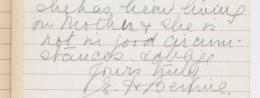 she has been living
on Mother & she is
not in good circum-
stances. & oblige
Yours truly
E. H.